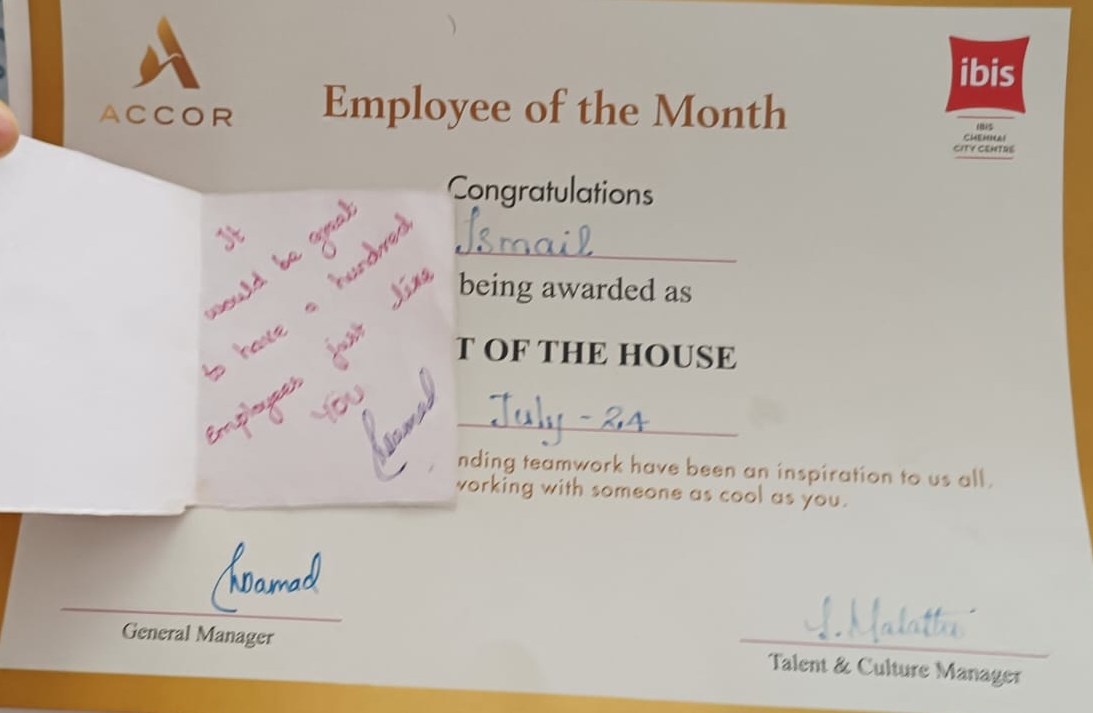 ACCOR
Employee of the Month
ibis
IBIS
CHENNAI
CITY CENTRE
Congratulations
Ismail
being awarded as
T OF THE HOUSE
July - 24
nding teamwork have been an inspiration to us all.
vorking with someone as cool as you.
It
would be great
to have a hundred
employees just like
YOU
General Manager
Talent & Culture Manager